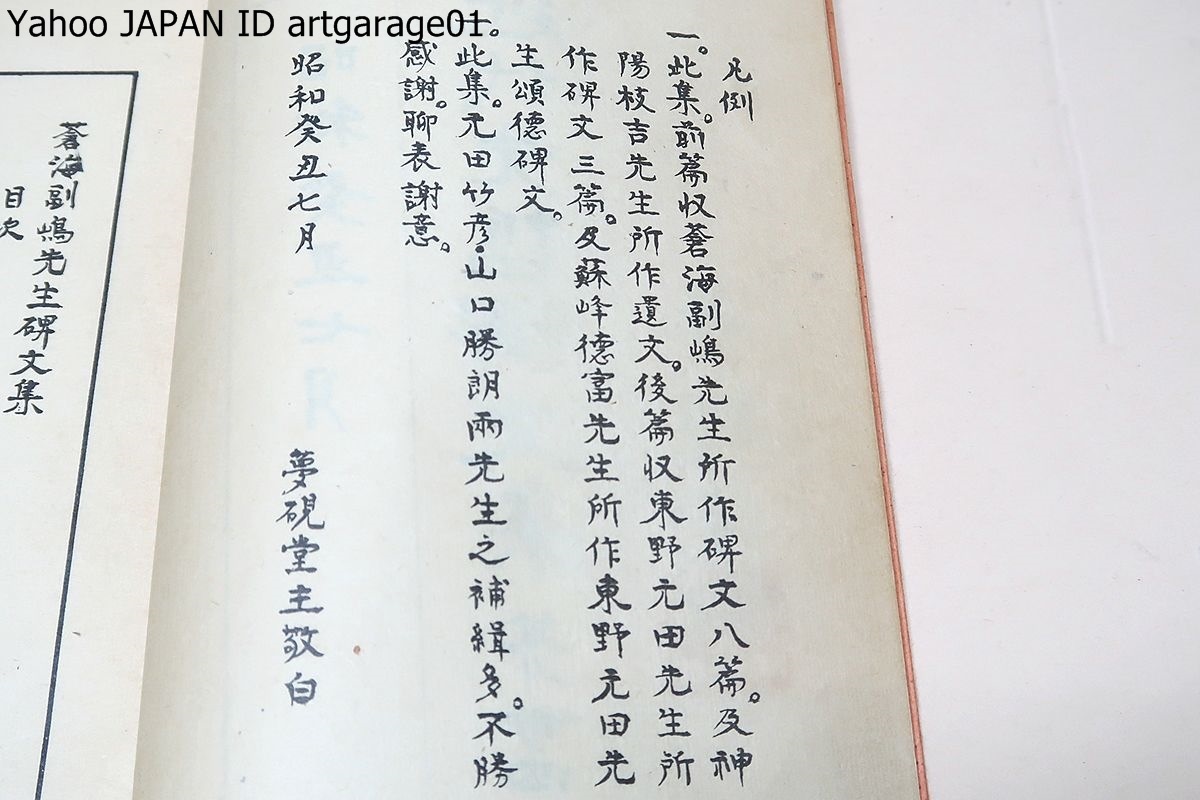 Yahoo JAPAN ID artgarage01
凡例
一。此集。前篇収蒼海副嶋先生所作碑文八篇。及神
陽枝吉先生所作遺文。後篇収東野元田先生所
作碑文三篇。及蘇峰德富先生所作東野元田先
生頌德碑文。
一。此集。元田竹彦・山口勝朗兩先生之補緝多。不勝
感謝。聊表謝意。
昭和癸丑七月
夢硯堂主敬白
蒼海副嶋先生碑文集
目次